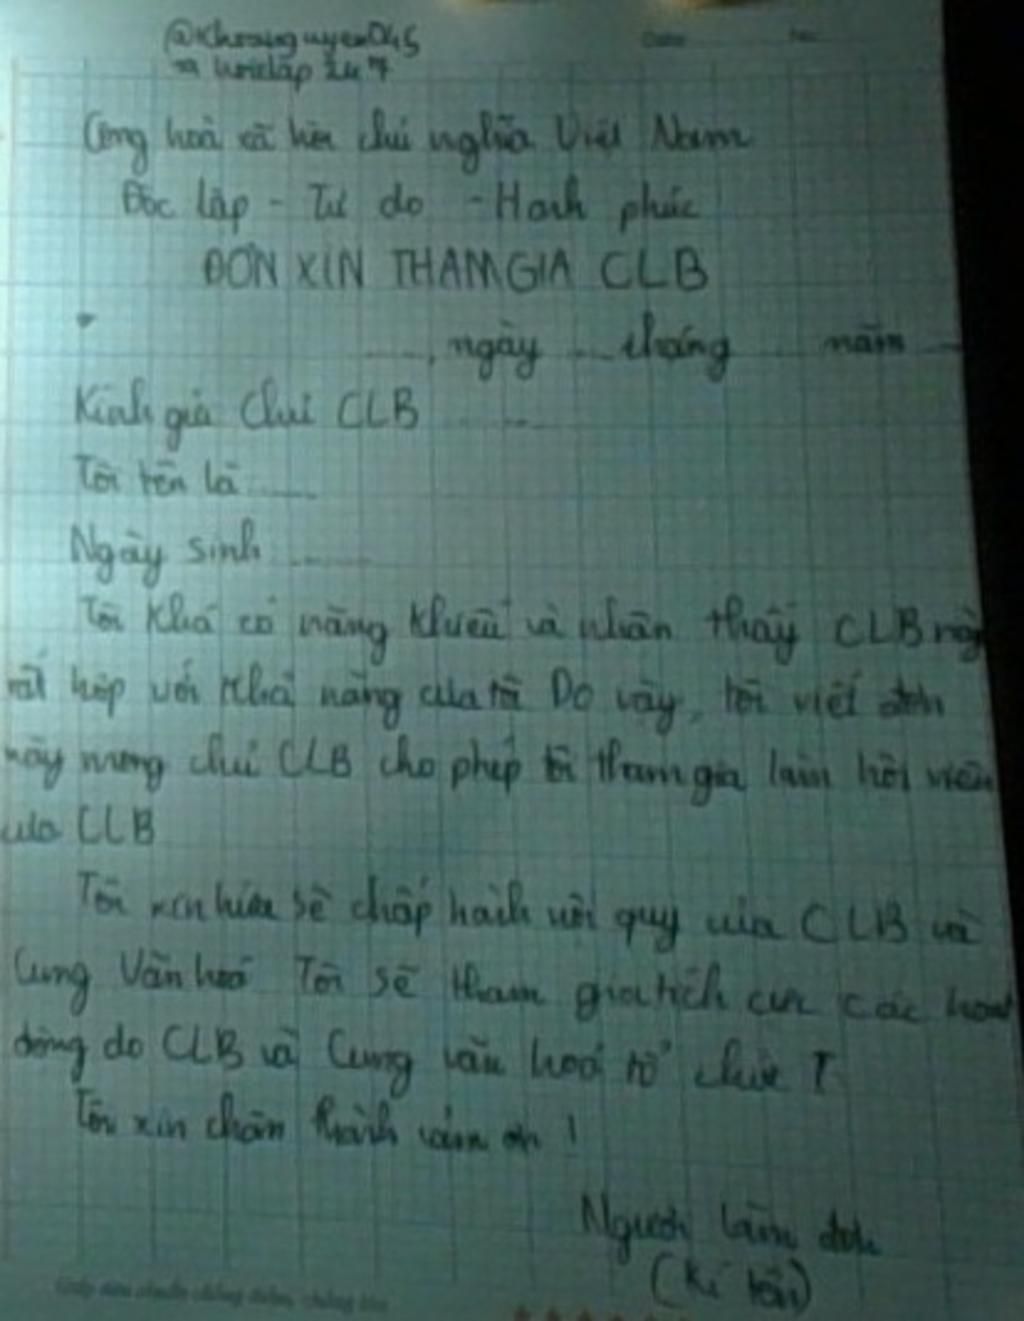 @Khoanguyen045
hoidap 247
Cộng hoà xã hội chủ nghĩa Việt Nam
Độc lập - Tự do - Hạnh phúc
ĐƠN XIN THAM GIA CLB
..., ngày ... tháng năm ...
Kính gửi Chủ CLB ...
Tôi tên là ...
Ngày sinh ...
Tôi khá có năng khiếu và nhận thấy CLB này
rất hợp với khả năng của tôi Do vậy, tôi viết đơn
này mong chủ CLB cho phép tôi tham gia làm hội viên
của CLB
Tôi xin hứa sẽ chấp hành nội quy của CLB và
Cung Văn hoá Tôi sẽ tham gia tích cực các hoạt
động do CLB và Cung văn hoá tổ chức
Tôi xin chân thành cảm ơn !
Người làm đơn
(Kí tên)